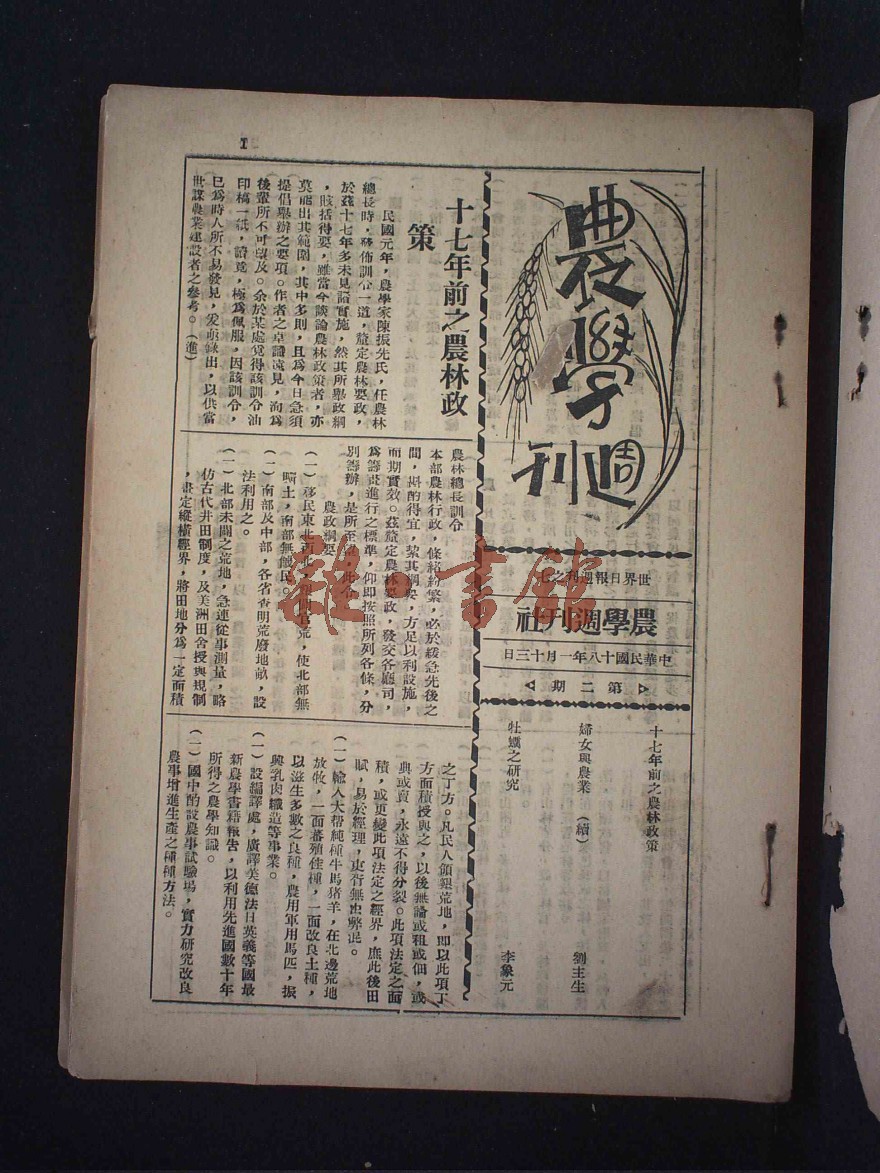 農學
週刊
世界日報週刊之七
農學週刊社
中華民國十八年一月十三日
第二期
十七年前之農林政策
婦女與農業（續） 劉主生
牡蠣之研究 李象元
1
十七年前之農林政
策
民國元年，農學家陳振先氏，任農林
總長時，發佈訓令一道，釐定農林要政，
於茲十七年多未見諸實施，然其所舉政綱
，賅括得要，雖當今談論農林政策者，亦
莫能出其範圍，其中多則，且爲今日急須
提倡舉辦之要項。作者之卓識遠見，洵爲
後輩所不可及。余於某處覓得該訓令油
印稿一紙，讀竟，極爲佩服，因該訓令，
已爲時人所不易發見，爰錄出，以供當
世謀農業建設者之參考。（進）
農林總長訓令
本部農林行政，條緒紛繁，必於緩急先後之
間，斟酌得宜，挈其綱要，方足以利設施，
而期實效。茲釐定農林要政，發交各廳司，
爲籌畫進行之標準，仰即按照所列各條，分
別籌辦，是所至，此令
農政綱要
（一）移民東北西北，官荒，使北部無
曠土，南部無餓民。
（一）南部及中部，各省查明荒廢地畝，設
法利用之。
（一）北部未闢之荒地，急速從事測量，略
仿古代井田制度，及美洲田舍授與規制
，畫定縱橫經界，將田地分爲一定面積
之丁方。凡民人領墾荒地，即以此項丁
方面積授與之，以後無論或租或佃，或
典或賣，永遠不得分裂。此項法定之面
積，或更變此項法定之經界，庶此後田
賦，易於經理，吏胥無由弊混。
（一）輸入大帮純種牛馬猪羊，在北邊荒地
放牧，一面蕃殖佳種，一面改良土種，
以滋生多數之良種，農用軍用馬匹，振
興乳肉織造等事業。
（一）設編譯處，廣譯美德法日英義等國最
新農學書籍報告，以利用先進國數十年
所得之農學知識。
（一）國中酌設農事試驗場，實力研究改良
農事增進生產之種種方法。
雜·書館